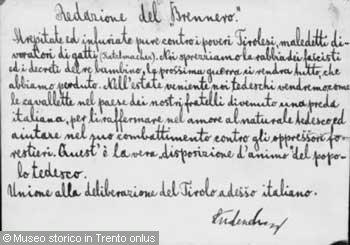 Redazione del "Brennero".
Strepitate ed infuriate pure contro i poveri Tirolesi, maledetti di-
voratori di gatti (Katzlmacher). Noi sprezziamo la rabbia dei fascisti
ed i decreti del re bambino, la prossima guerra ci rendra tutto, che
abbiamo perduto. Nell'estate veniente noi tedeschi vendremo come
le cavallette nel paese dei nostri fratelli divenuto una preda
italiana, per li raffermare nel amore al naturale tedesco, ed
aiutare nel suo combattimento contro gli oppressori fo-
restieri. Quest'è la vera disposizione d'animo del popo-
lo tedesco.
Unione alla deliberazione del Tirolo adesso italiano.
© Museo storico in Trento onlus